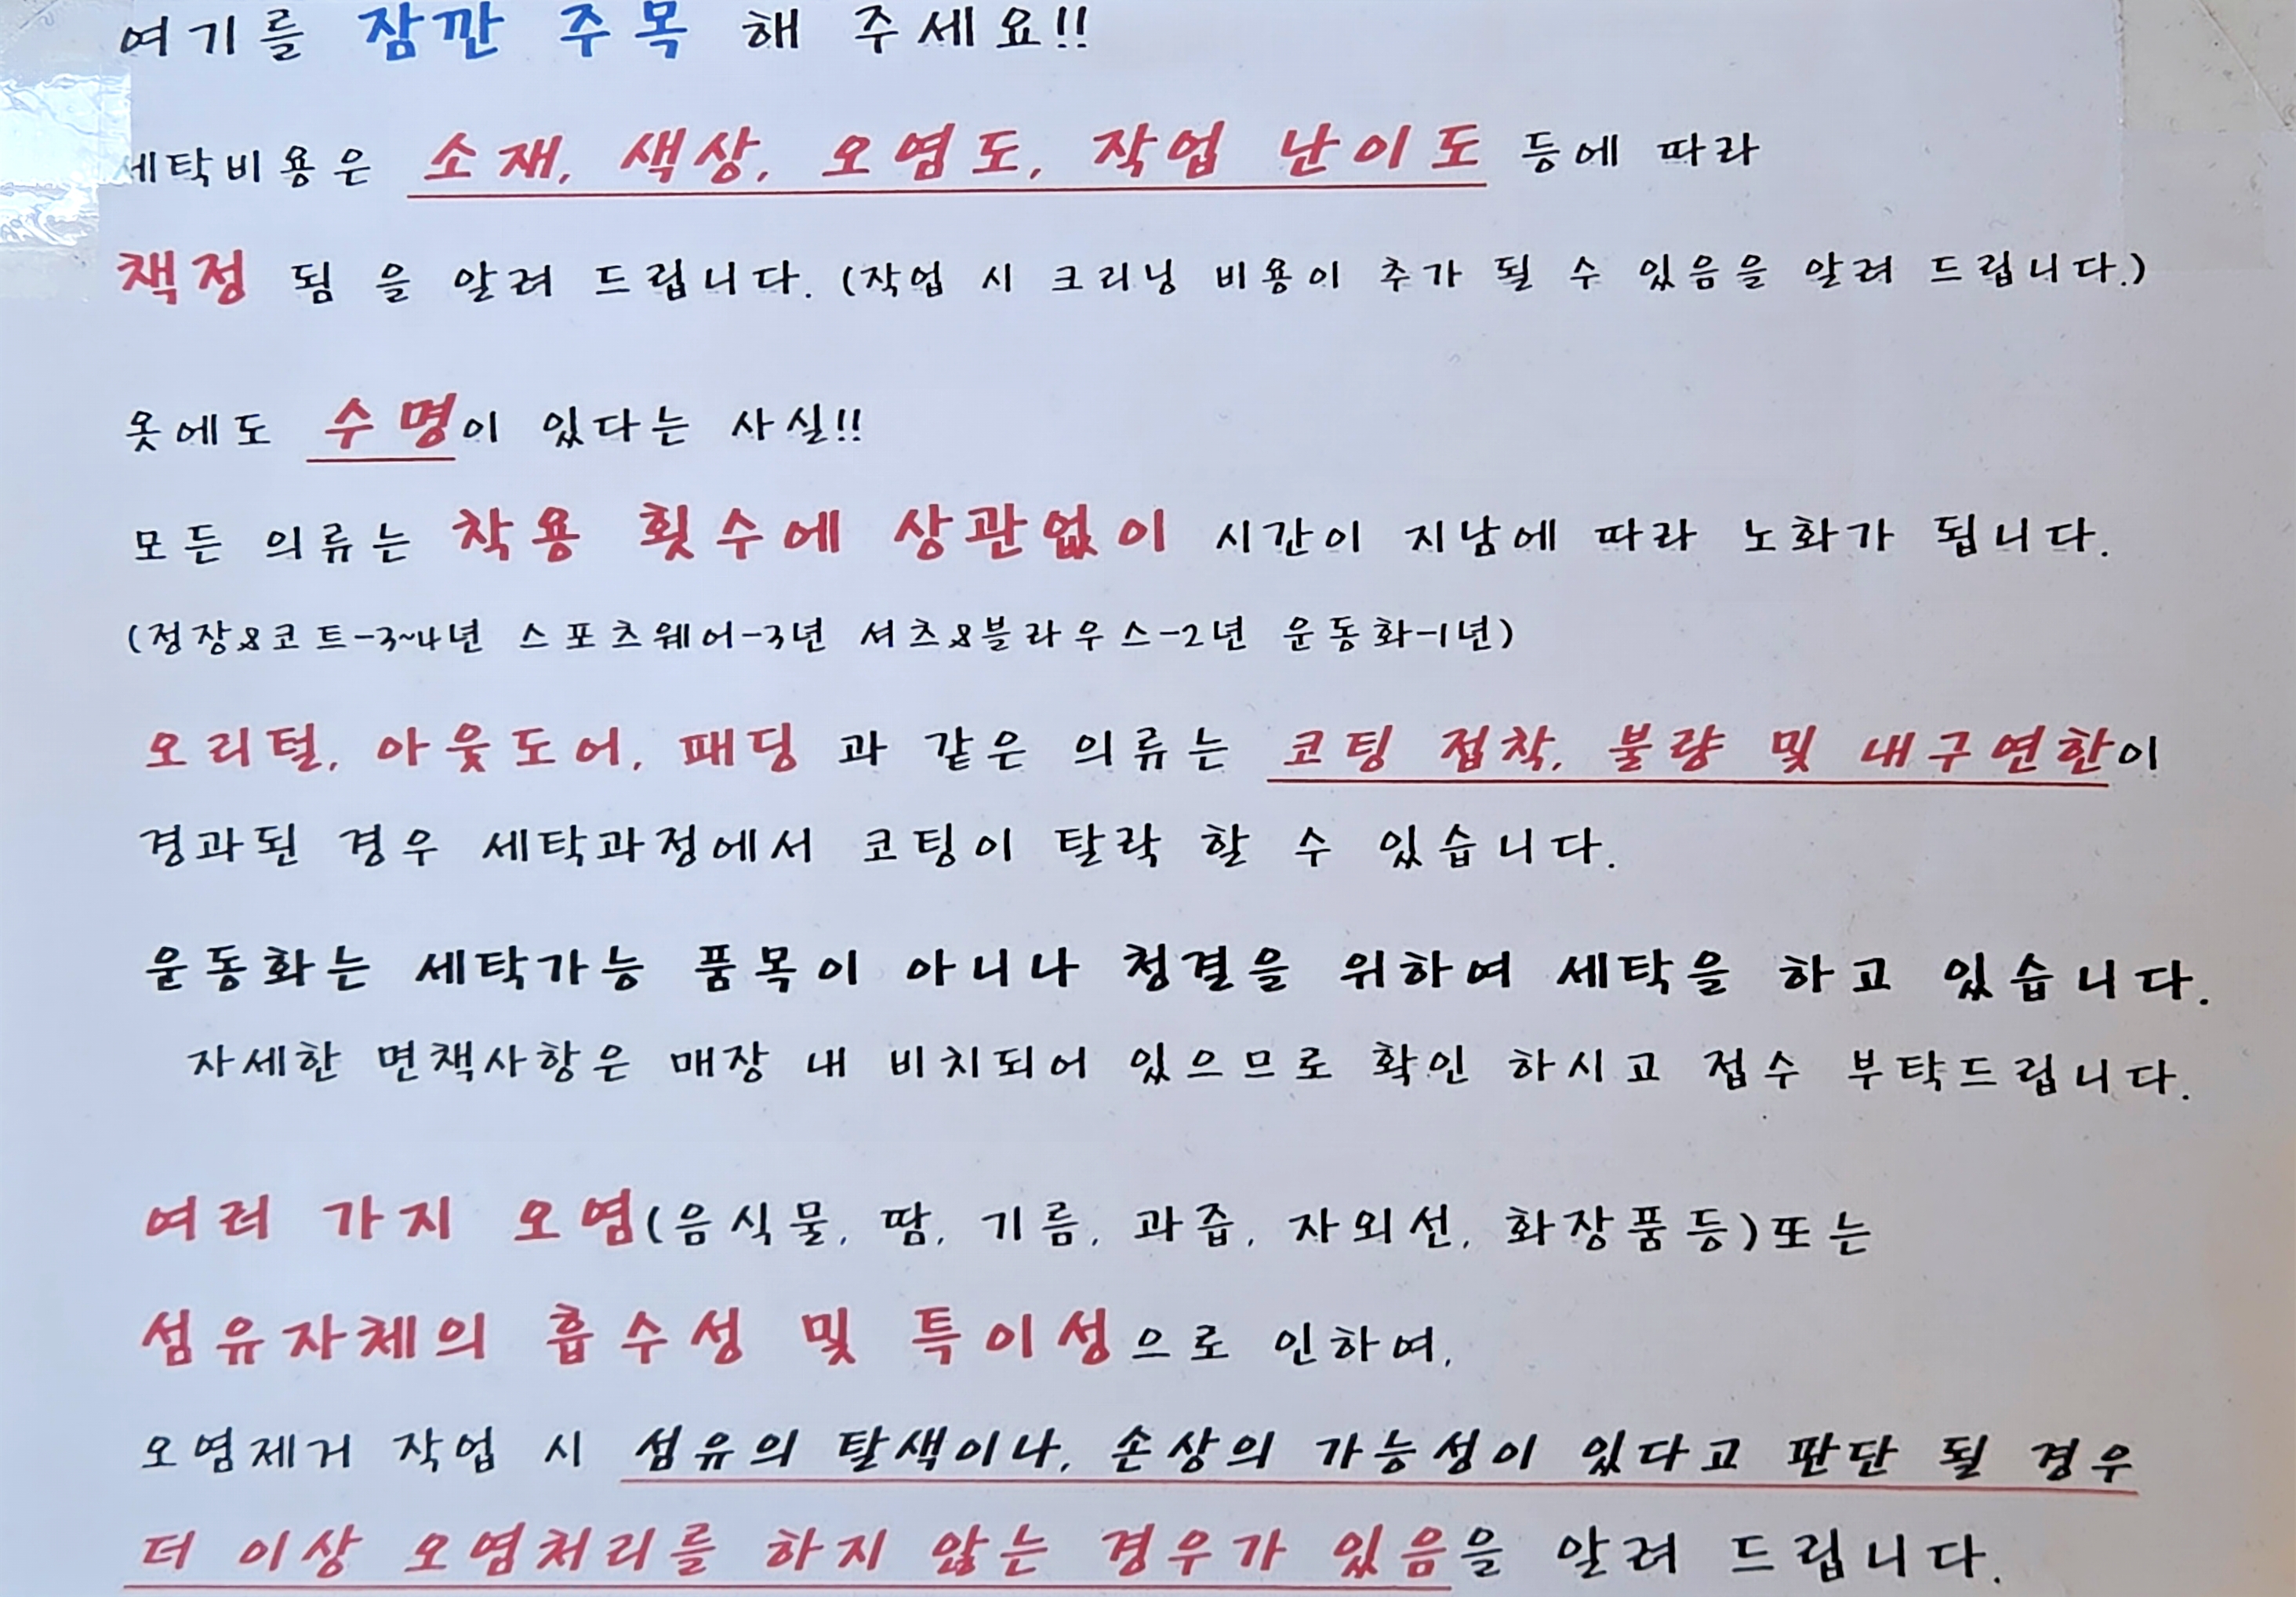 여기를 잠깐 주목 해 주세요!!
세탁비용은 소재, 색상, 오염도, 작업 난이도 등에 따라
책정 됨 을 알려 드립니다. (작업 시 크리닝 비용이 추가 될 수 있음을 알려 드립니다.)
옷에도 수명이 있다는 사실!!
모든 의류는 착용 횟수에 상관없이 시간이 지남에 따라 노화가 됩니다.
(정장&코트-3~4년 스포츠웨어-3년 셔츠&블라우스-2년 운동화-1년)
오리털, 아웃도어, 패딩 과 같은 의류는 코팅 접착, 불량 및 내구연한이
경과된 경우 세탁과정에서 코팅이 탈락 할 수 있습니다.
운동화는 세탁가능 품목이 아니나 청결을 위하여 세탁을 하고 있습니다.
자세한 면책사항은 매장 내 비치되어 있으므로 확인 하시고 접수 부탁드립니다.
여러 가지 오염(음식물, 땀, 기름, 과즙, 자외선, 화장품등)또는
섬유자체의 흡수성 및 특이성으로 인하여,
오염제거 작업 시 섬유의 탈색이나, 손상의 가능성이 있다고 판단 될 경우
더 이상 오염처리를 하지 않는 경우가 있음을 알려 드립니다.